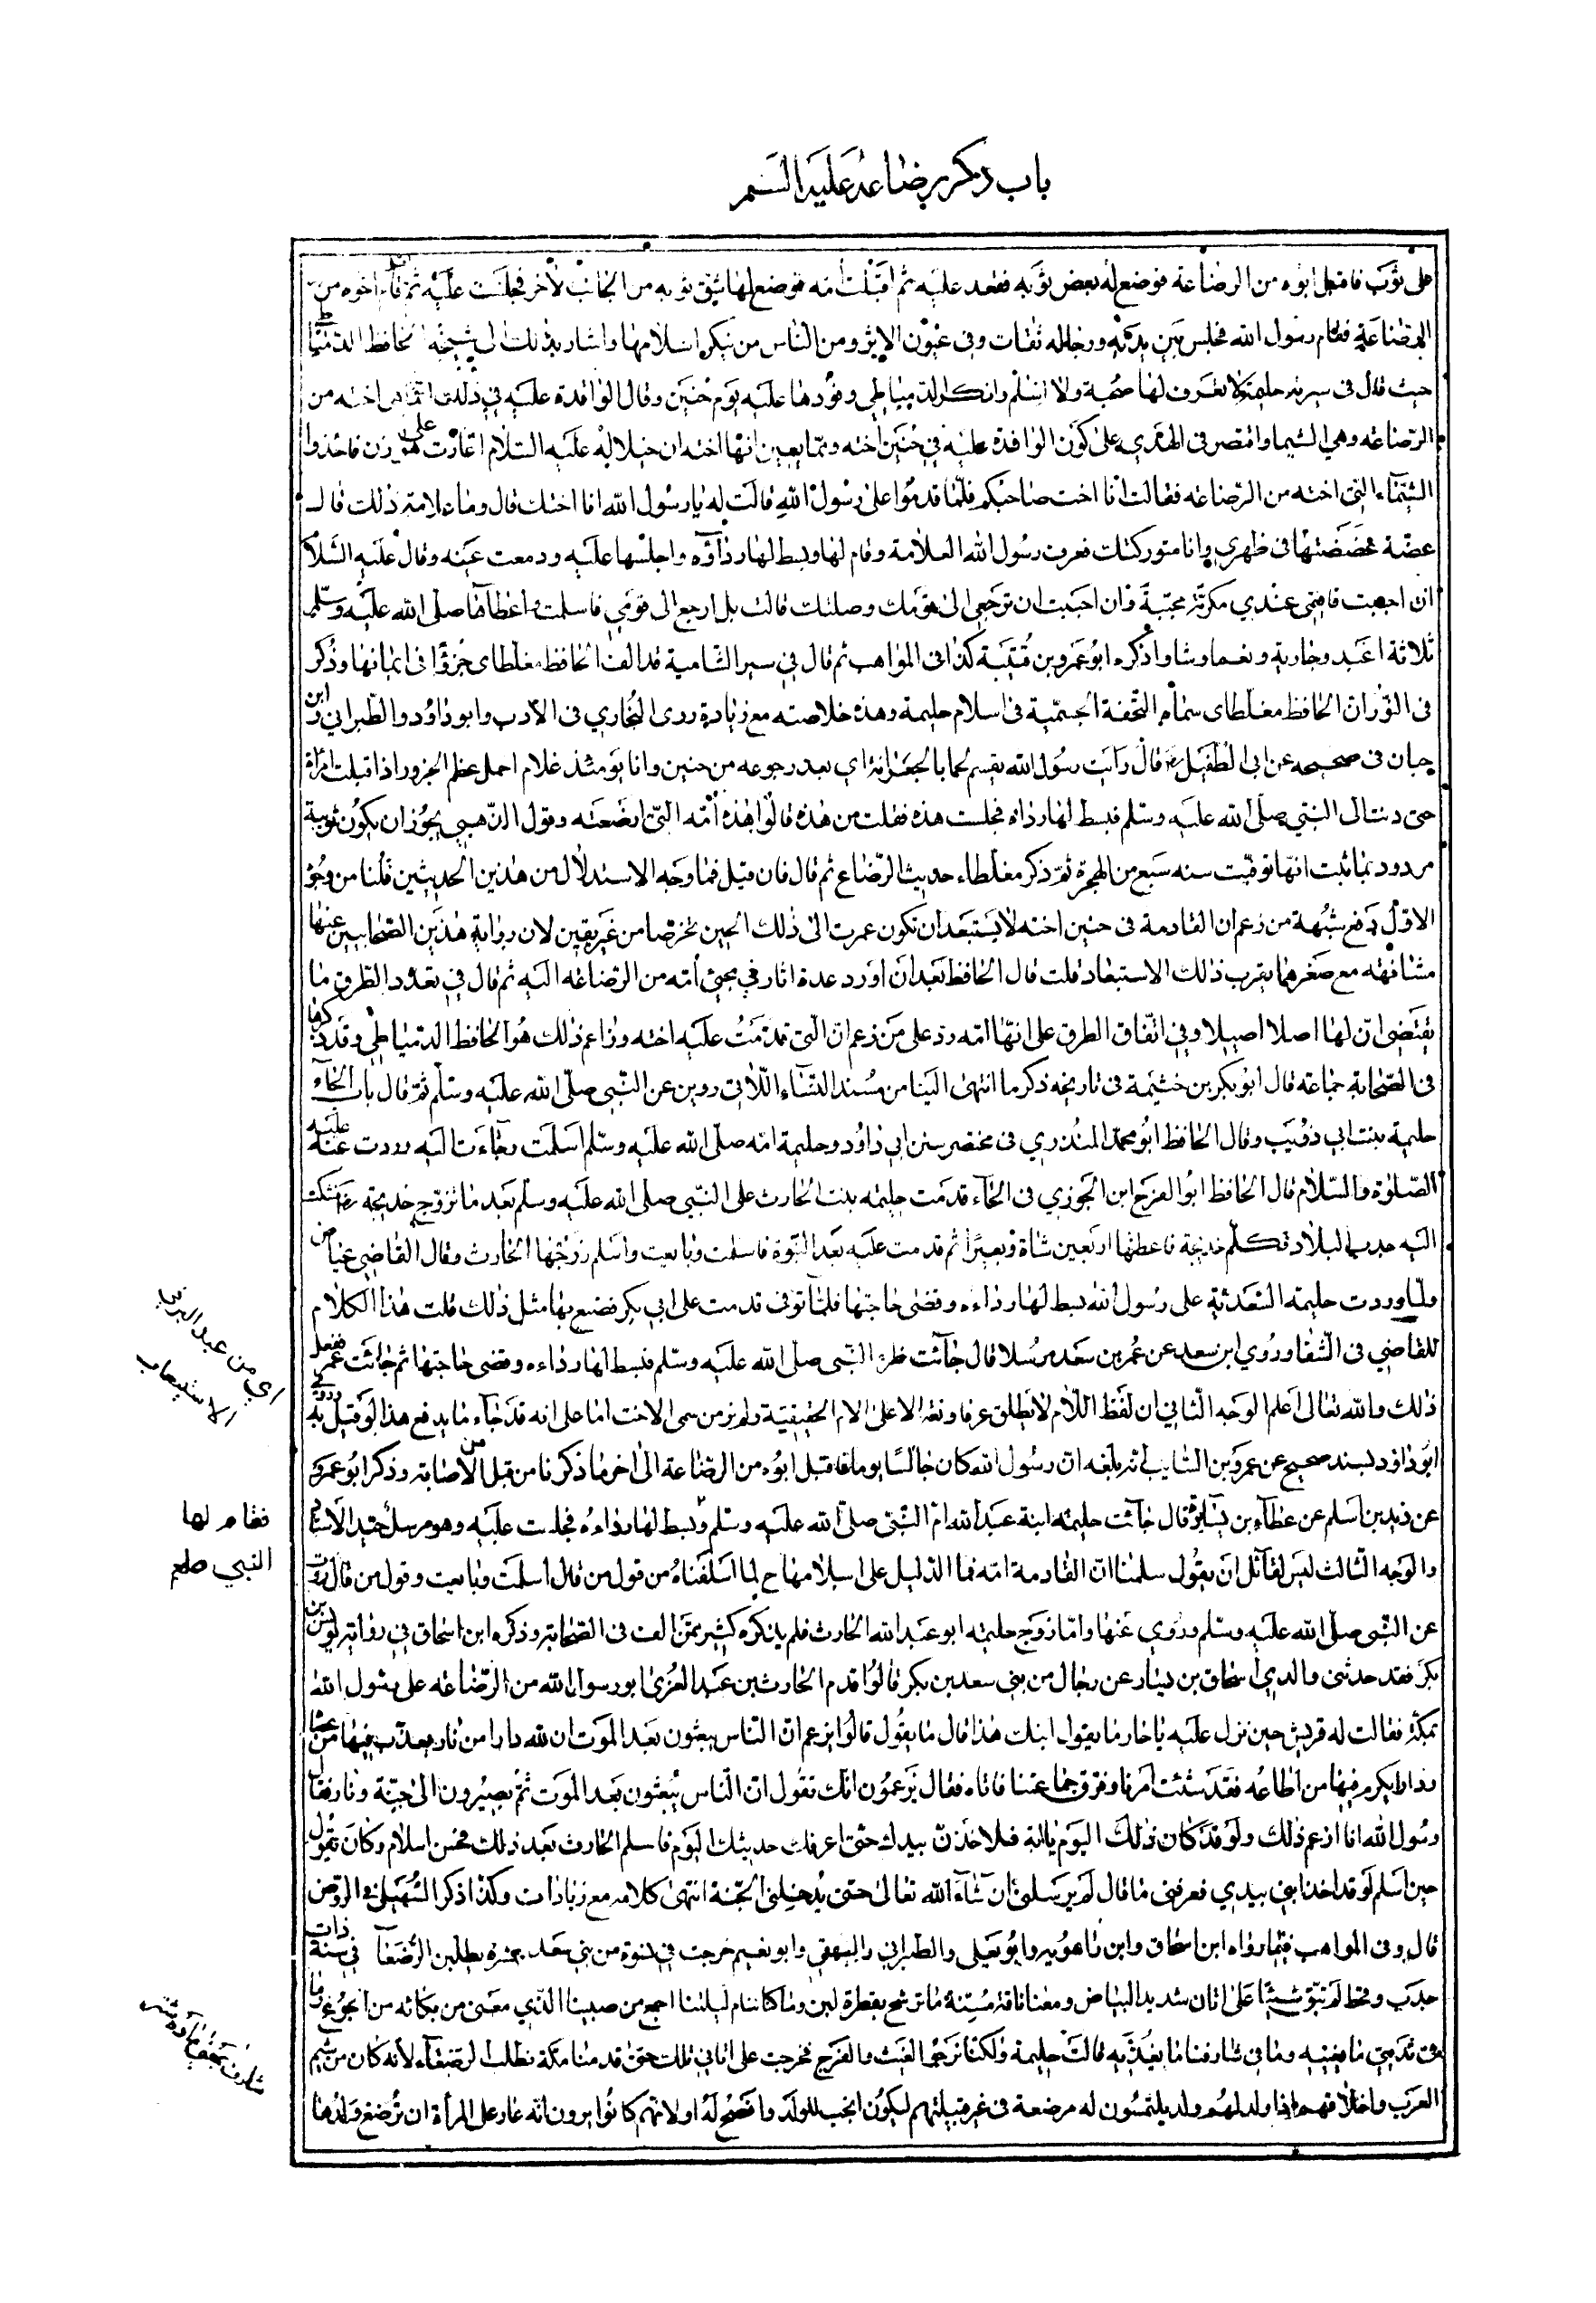 باب ذكر رضاعه عليه السلم
على ثوب فاقبل ابوه من الرضاعة فوضع له بعض ثوبه فقعد عليه ثم اقبلت امه فوضع لها شق ثوبه من الجانب الاخر فجلست عليه ثم جاء اخوه من
الرضاعة فقام رسول الله فجلس بين يديه ورجاله ثقات وفى عيون الاثر ومن الناس من ينكر اسلامها واشار بذلك الى شيخه الحافظ الدمياطى
حيث قال فى سيرته حليمة لا نعرف لها صحبة ولا اسلام وانكر الدمياطى وفودها عليه يوم حنين وقال الوافدة عليه فى ذلك انما هى اخته من
الرضاعة وهى الشيما واقتصر فى الهدى على كون الوافدة عليه فى حنين اخته ومما يعين انها اخته ان خيلا له عليه السلام اغارت على هوازن فاخذوا
الشيماء التى اخته من الرضاعة فقالت انا اخت صاحبكم فلما قدموا على رسول الله قالت له يا رسول الله انا اختك قال وما علامة ذلك قالـ
عضة عضضتها فى ظهرى وانا متوركتك فعرف رسول الله العلامة وقام لها وبسط لها رداؤه واجلسها عليه ودمعت عينه وقال عليه السلا
ان احببت فاقيمى عندي مكرمة محببة وان احببت ان ترجعى الى قومك وصلتك قالت بل ارجع الى قومي فاسلمت واعطاها صلى الله عليه وسلم
ثلاثة اعبد وجارية ونعما وشا وذكره ابو عمرو بن قتيبة كذا فى المواهب ثم قال في سير الشامية قد الف الحافظ مغلطاى جزؤا فى ايمانها وذكر
فى النور ان الحافظ مغلطاى سماه التحفة الجسمية فى اسلام حليمة وهذه خلاصته مع زيادة روى البخاري فى الأدب وابو داود والطبراني وابن
حبان فى صحيحه عن ابى الطفيل رضـ قال رأيت رسول الله يقسم لحما بالجعرانة اي بعد رجوعه من حنين وانا يومئذ غلام احمل عظم الجزور اذ اقبلت امرأة
حتى دنت الى النبي صلى الله عليه وسلم فبسط لها رداه فجلست هذه فقلت من هذه قالوا هذه أمه التى ارضعته وقول الذهبي يجوز ان يكون ثويبة
مردود بما ثبت انها توفيت سنه سبع من الهجرة ثم ذكر مغلطاء حديث الرضاع ثم قال فان قيل فما وجه الاستدلال من هذين الحديثين قلنا من وجوه
الاول دفع شبهة من زعم ان القادمة فى حنين اخته لا يستبعد ان تكون عمرت الى ذلك الحين تخرصا من غير يقين لان رواية هذين الصحابيين عنها
مشافهة مع صغرهما يقرب ذلك الاستبعاد قلت قال الحافظ بعد ان اورد عدة اثار في مجئ أمه من الرضاعة اليه ثم قال في تعدد الطرق ما
يقتضى ان لها اصلا اصيلا وفي اتفاق الطرق على انها امه رد على من زعم ان التى قدمت عليه اخته وزاعم ذلك هو الحافظ الدمياطى وقد ذكرها
فى الصحابة جماعة قال ابو بكر بن خثيمة فى تاريخه ذكر ما انتهى الينا من مسند النساء اللاتى روين عن النبى صلى الله عليه وسلم ثم قال باب الحاء
حليمة بنت ابي ذؤيب وقال الحافظ ابو محمد المنذري فى مختصر سنن ابي داود وحليمة امه صلى الله عليه وسلم اسلمت وجاءت اليه وروت عنه عليه
الصلوة والسلام قال الحافظ ابو الفرج ابن الجوزي فى الحاء قدمت حليمة بنت الحارث على النبي صلى الله عليه وسلم بعد ما تزوج خديجة رضـ فشكت
اليه جدب البلاد فكلم خديجة فاعطتها اربعين شاة وبعيرًا ثم قدمت عليه بعد النبوة فاسلمت وبايعت واسلم زوجها الحارث وقال القاضي عياض
ولما وردت حليمة السعدية على رسول الله بسط لها رداءه وقضى حاجتها فلما توفى قدمت على ابي بكر فضنع بها مثل ذلك قلت هذا الكلام
اي من عبد البر فى
الاستيعاب
للقاضي فى الشفا وروي ابن سعد عن عمر بن سعد مرسلا قال جآئت ظئر النبى صلى الله عليه وسلم فبسط لها رداءه وقضى حاجتها ثم جائت عمر ففعل
ذلك والله تعالى اعلم الوجه الثاني ان لفظ اللام لا يطلق عرفا ولغة الا على الام الحقيقية ولم نر من سمى الاخت اما على انه قد جاء ما يدفع هذا لو قيل به وروى
ابو داود بسند صحيح عن عمرو بن السايب انه بلغه ان رسول الله كان جالسًا يوما فاقبل ابوه من الرضاعة الى اخر ما ذكرنا من قبل من الاصابة وذكر ابو عمرو
عن زيد بن اسلم عن عطاء بن يسار قال جآئت حليمة ابنة عبد الله ام النبى صلى الله عليه وسلم وبسط لها رداءه فجلست عليه وهو مرسل جيد الاسناد
فقام لها
النبي صلعم
والوجه الثالث ليس لقآئل ان يقول سلمنا ان القادمة امه فما الدليل على اسلامها ح لما اسلفناه من قول من قال اسلمت وبايعت وقول من قال روت
عن النبى صلى الله عليه وسلم وروي عنها واما زوج حليمة ابو عبد الله الحارث فلم يذكره كثير ممن الف فى الصحابة وذكره ابن اسحاق في رواية يونس بن
بكر فقد حدثنى والدي اسحاق بن دينار عن رجال من بنى سعد بن بكر قالوا قدم الحارث بن عبد العزى ابو رسول الله من الرضاعة على رسول الله
بمكة فقالت له قريش حين نزل عليه يا حار ما يقول ابنك هذا قال ما يقول قالوا يزعم ان الناس يبعثون بعد الموت ان لله دارا من نار يعذب فيها من عصا
ودارا يكرم فيها من اطاعه فقد شتت امرنا وفرق جماعتنا فاتاه فقال يزعمون انك تقول ان الناس يبعثون بعد الموت ثم يصيرون الى جنة ونار فقال
رسول الله انا ازعم ذلك ولو قد كان ذلك اليوم يا ابة فلا خذن بيدك حتى اعرفك حديثك اليوم فاسلم الحارث بعد ذلك فحسن اسلام وكان يقول
حين اسلم لو قد اخذ ابنى بيدي فعرفنى ما قال لم يرسلنى ان شآء الله تعالى حتى يدخلنى الجنة انتهى كلامه مع زيادات وكذا ذكر السهيلى فى الروض
قال وفى المواهب فيما رواه ابن اسحاق وابن راهويه وابو يعلى والطبراني والبيهقي وابو نعيم خرجت في نسوة من بنى سعد بن بكر يطلبن الرضعآ في سنة ذات
جدب وقحط لم تبق شيئًا على اتان شديد البياض ومعنا ناقة مسنة ما ترشح بقطرة لبن وما كنا ننام ليلتنا اجمع من صبينا الذي معنى من بكائه من الجوع وما
فى ثديي ما يغنيه وما في شارفنا ما يغذيه قالت حليمة ولكنا نرجو الغيث والفرج فخرجت على اتاني تلك حتى قدمنا مكة نطلب الرضعآء لأنه كان من شيم
العرب واخلاقهم اذا ولد لهم ولد يلتمسون له مرضعة فى غير قبيلتهم ليكون انجب للولد وافصح له او لانهم كانوا يرون انه عار على المرأة ان ترضع ولدها